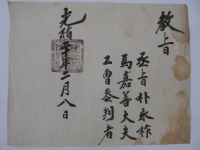 教旨
丞旨朴永祚
爲嘉善大夫
工曹參判者
光緖二十年二月八日